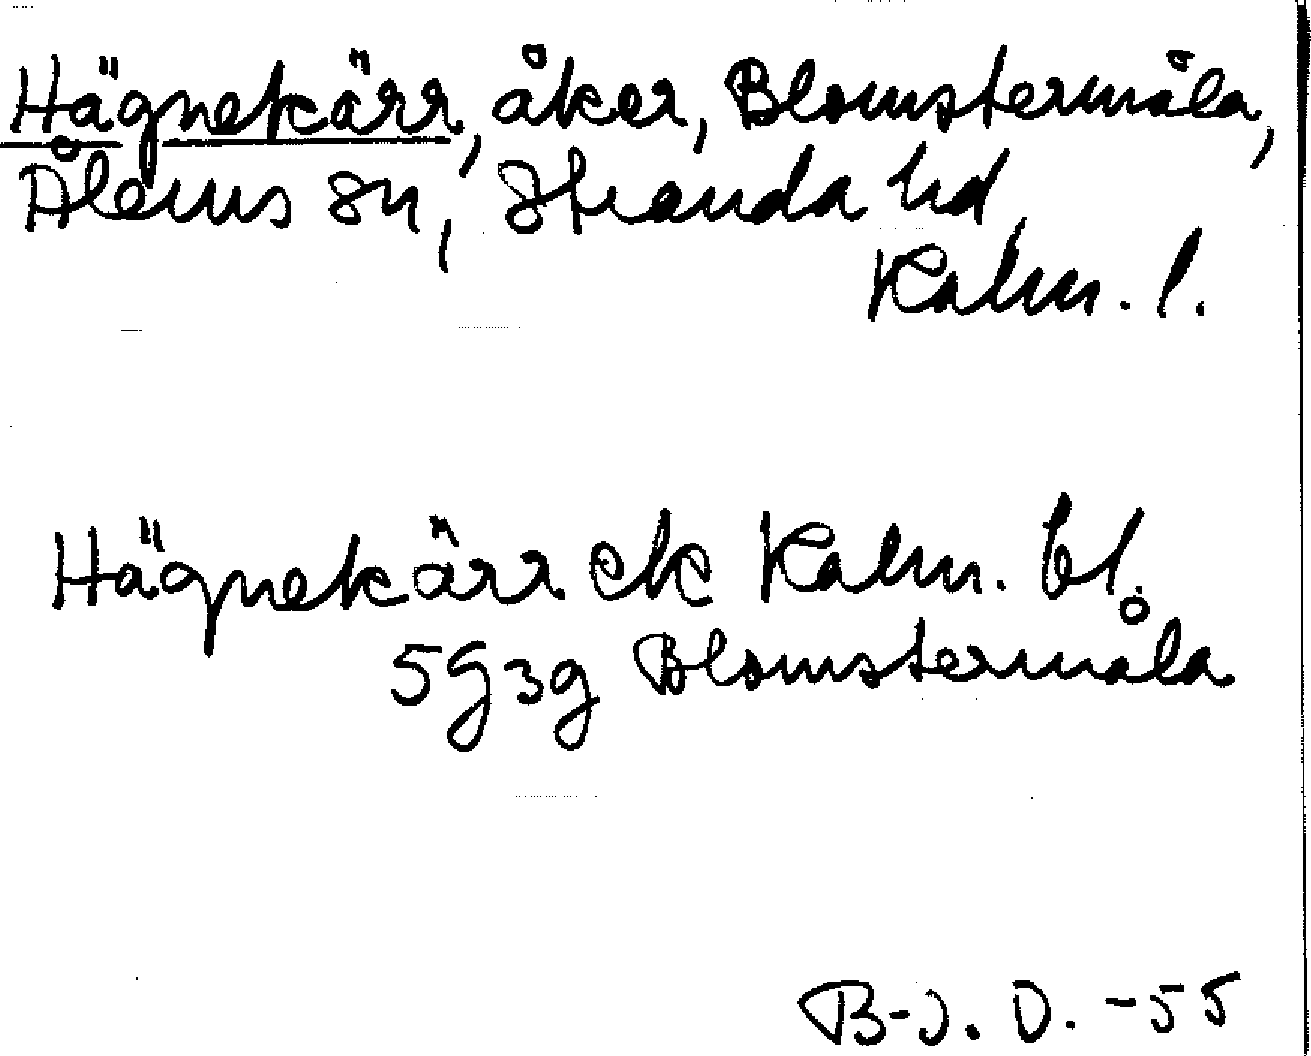 Hägnekärr, åker, Blomstermåla,
Ålems sn, Stranda hd,
Kalm. l.
Hägnekärr ek Kalm. bl.
5g3g Blomstermåla
B-J. O. -55